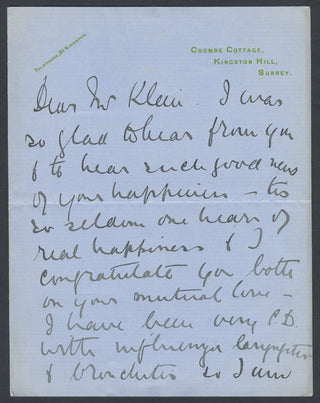 TELEPHONE, 31 KINGSTON.
COOMBE COTTAGE,
KINGSTON HILL,
SURREY.
Dear Mr Klein. I was
so glad to hear from you
& to hear such good news
of your happiness – tis
so seldom one hears of
real happiness & I
congratulate you both
on your mutual love –
I have been very
with influenza laryngitis
& bronchitis so I am